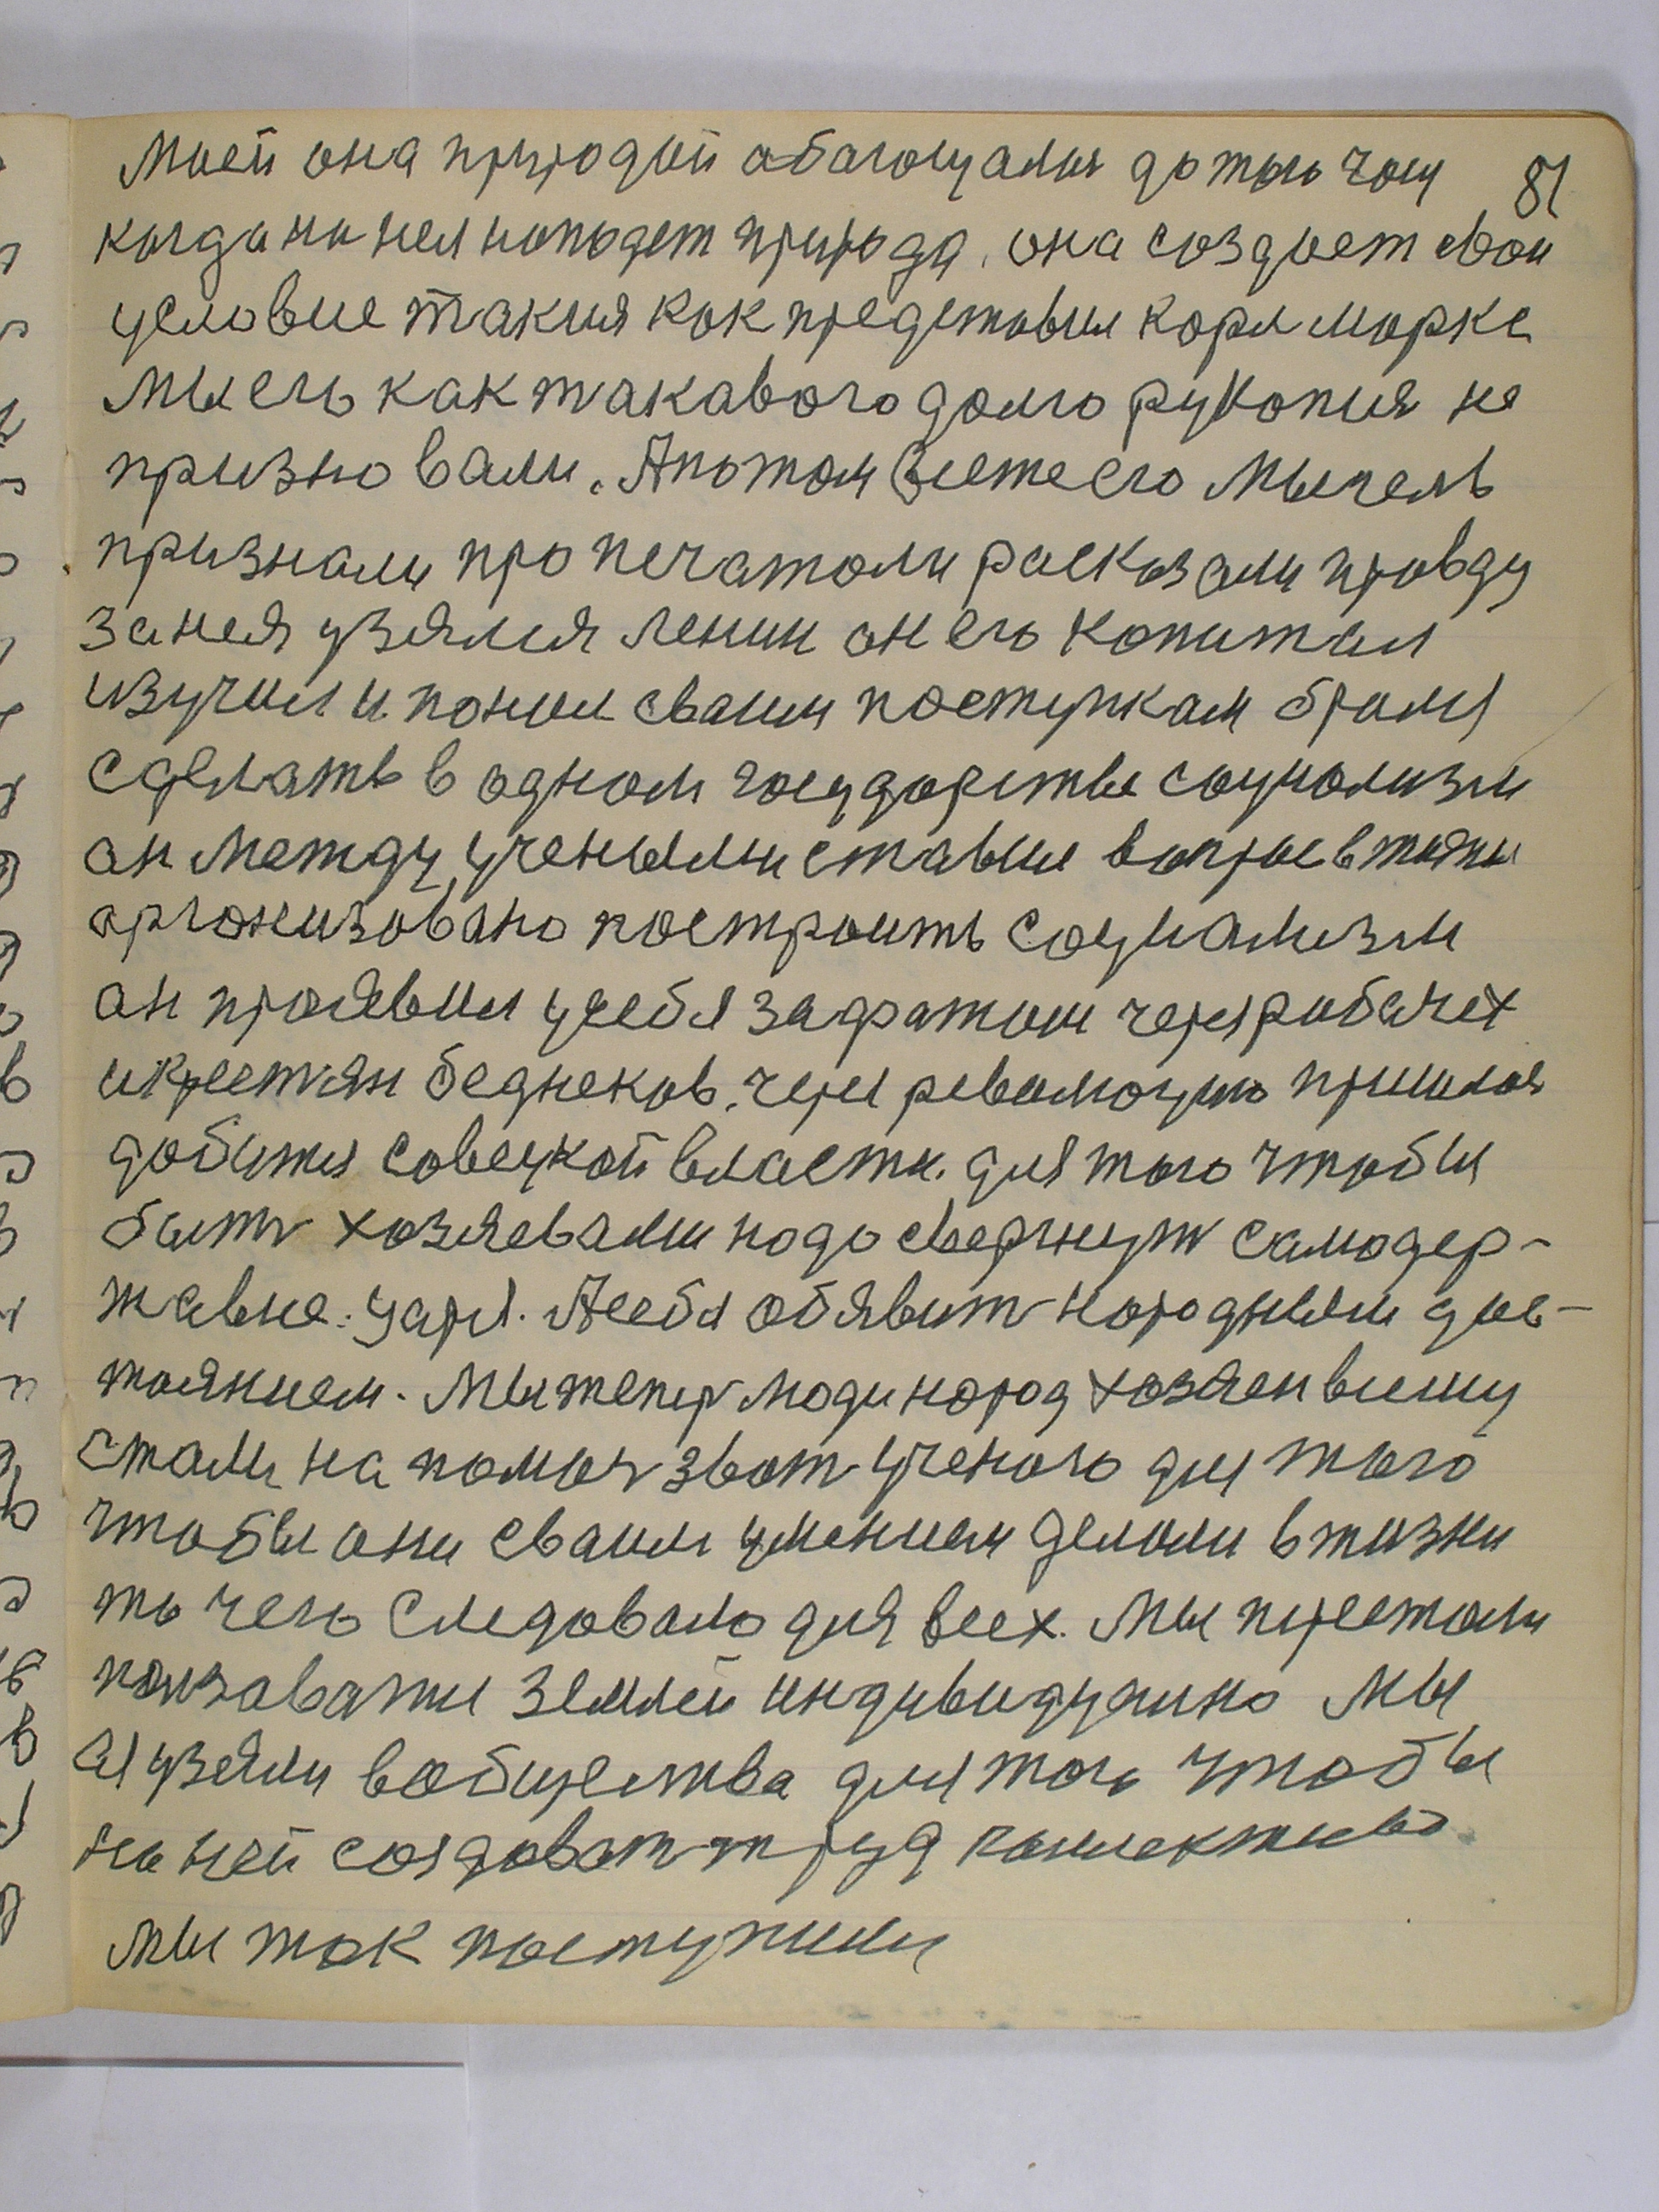 Моей она природой абагощалия до того часу 81
когда на нея нопадет природа. она создает свои
условие такия как представил Карл маркс
Мы его как такавого долго рукопия не
признавали. А потом веете его Мысель
признали про печатоли расказали правду
за нея узялися ленин он его Капитал
изучил и понил сваим поступкам бралси
сделать в одном государстве социолизм
он Между учеными ставил вопрос в жизни
аргонизовано построить социализм
он проявил у себя заφатом через рабочех
и крестян беднеков. через революцию пришлося
добится совецкой власти. для того чтобы
быть хозяевами надо свергнуть самодер-
жавие. царя. А себя обявить народным дос-
тоянием. Мы теперь люди народ хозяен всему
стали на помоч звать ученого для того
чтобы они сваим умением делали в жизни
то чего следовало для всех. Мы перестали
ползоватси землей индивидуално Мы
ея узяли в общества для того чтобы
на ней создовать труд коллективо
мы так поступили